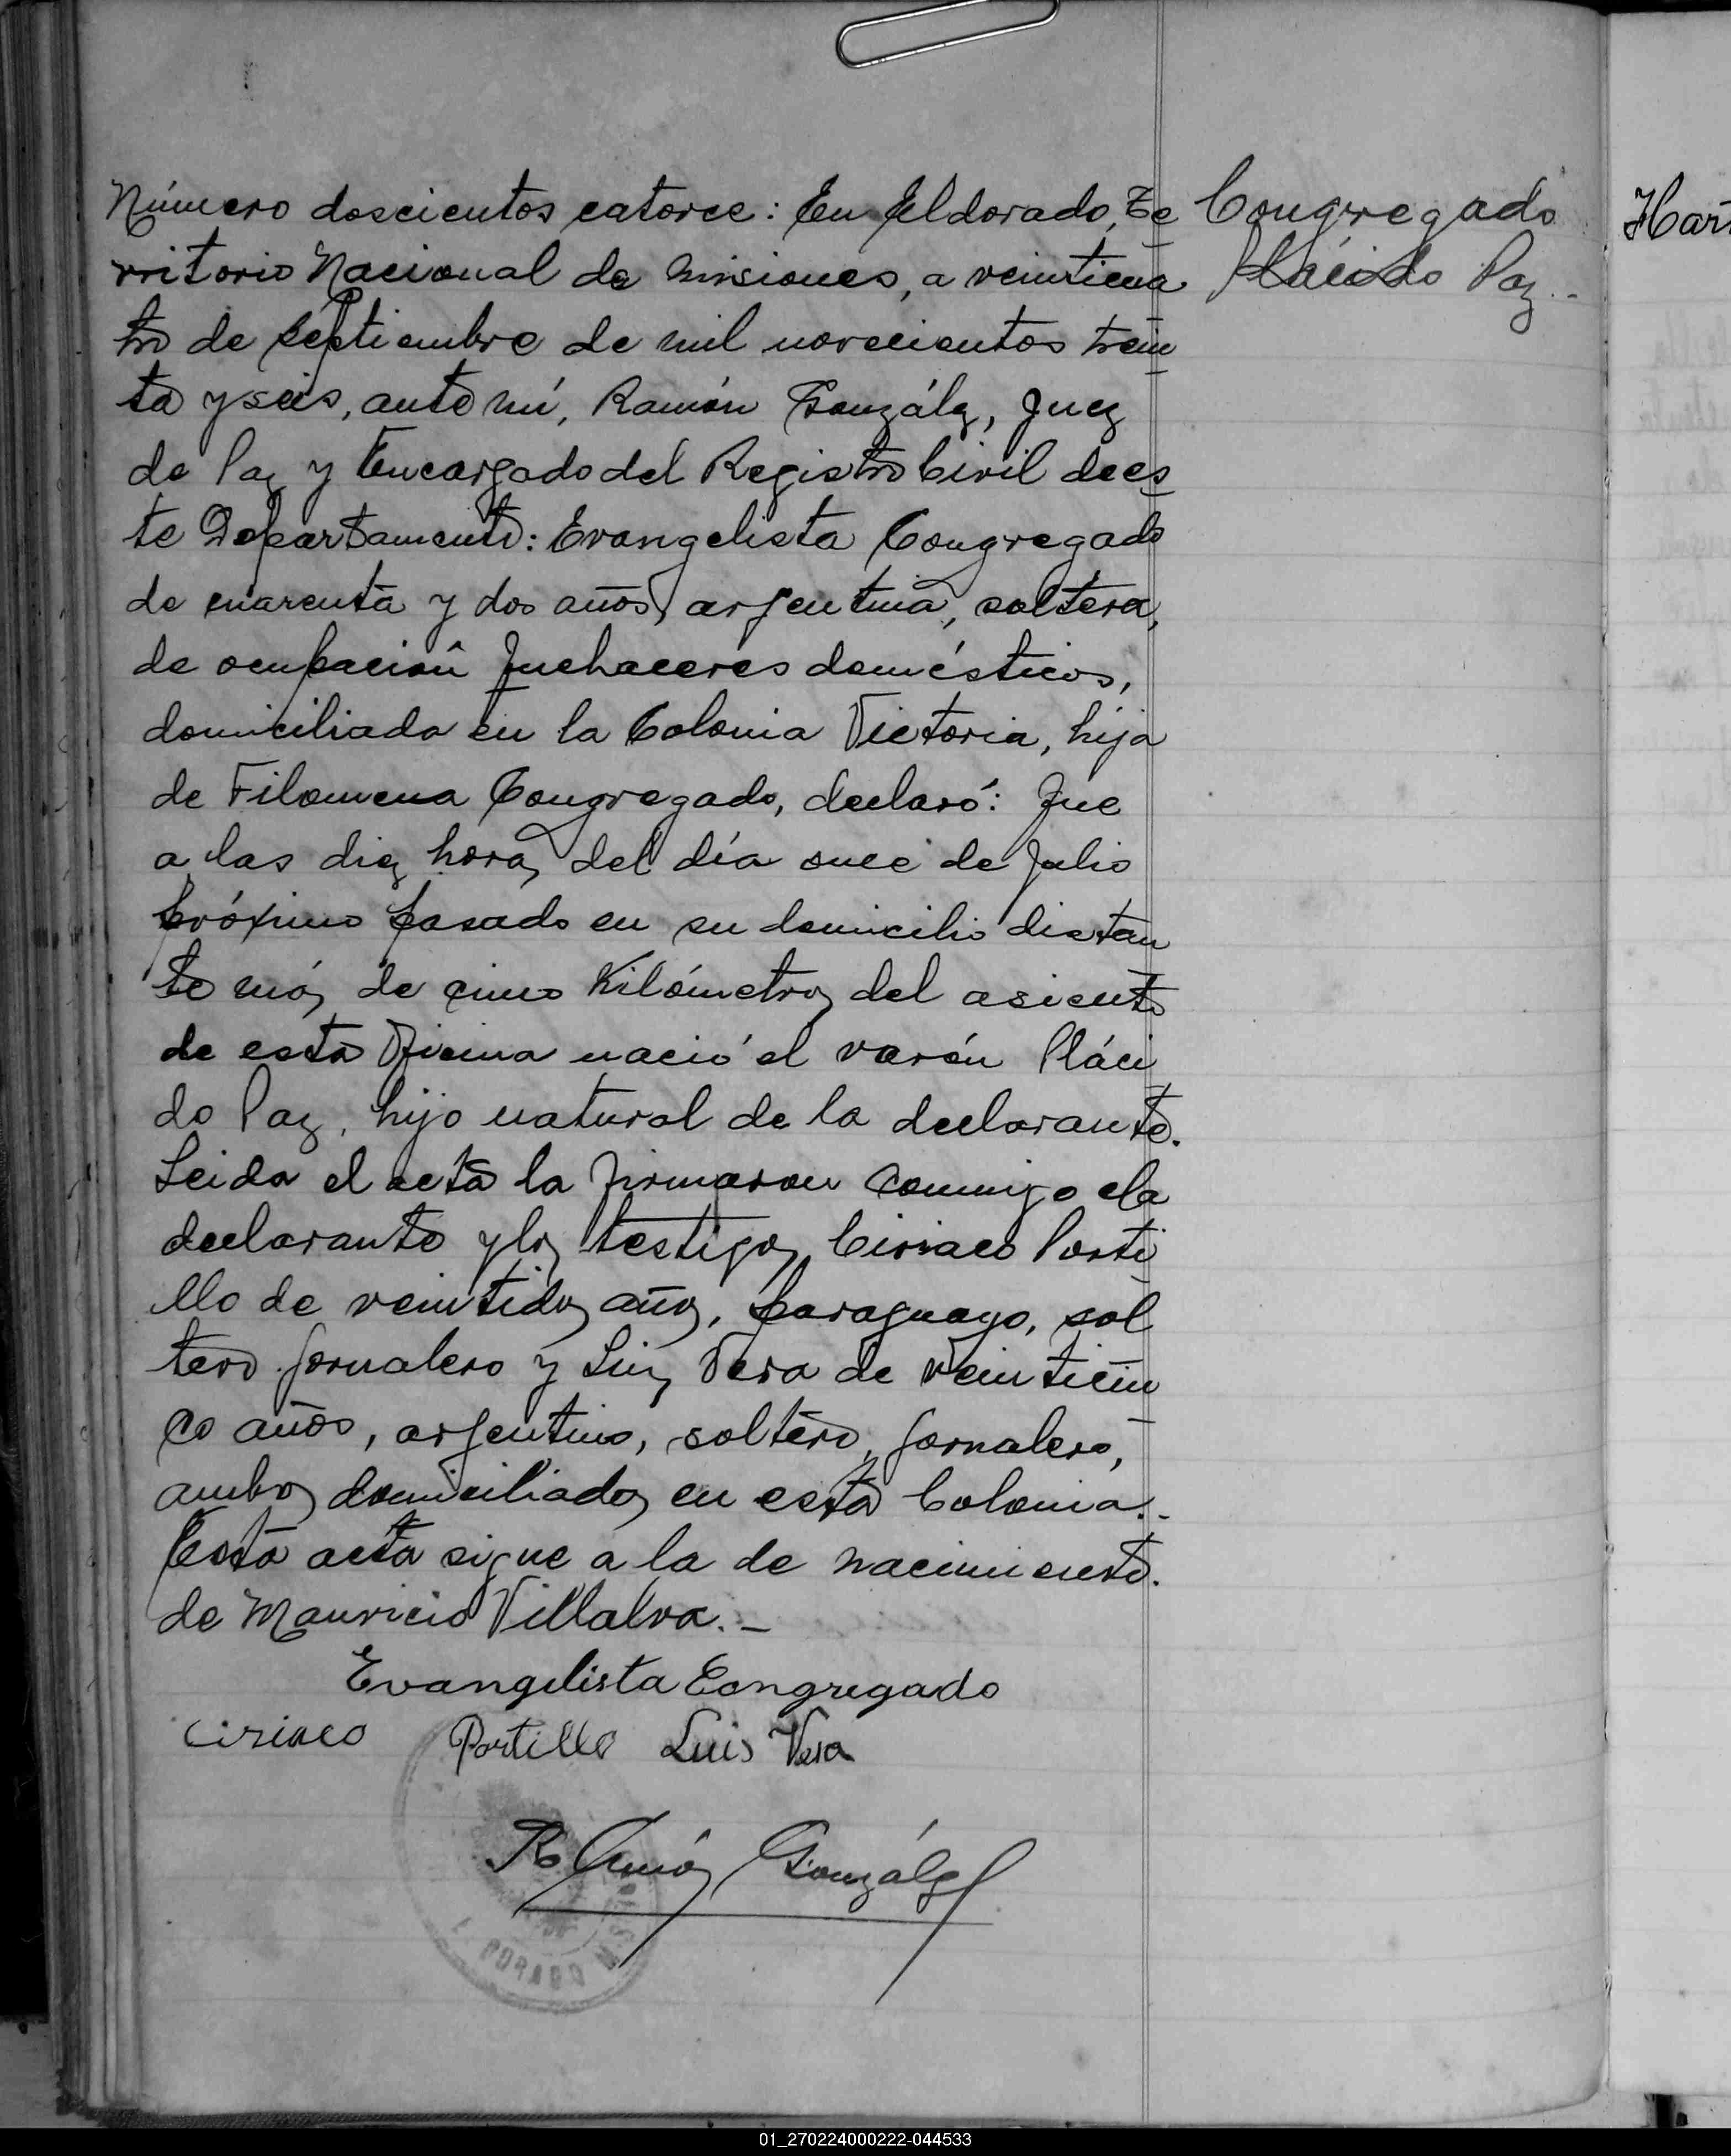 Número doscientos catorce: En Eldorado, Te
rritorio Nacional de Misiones, a veinticua
tro de Septiembre de mil novecientos trein
ta y seis, ante mí, Ramón González, Juez
de Paz y Encargado del Registro Civil de es
te Departamento: Evangelista Congregado
de cuarenta y dos años, argentina, soltera,
de ocupación Quehaceres domésticos,
domiciliada en la Colonia Victoria, hija
de Filomena Congregado, declaró: Que
a las diez horas del día once de Julio
próximo pasado en su domicilio distan
te más de cinco Kilómetros del asiento
de esta Oficina nació el varón Pláci
do Paz, hijo natural de la declarante.
Leida el acta la firmaron conmigo la
declarante y los testigos Ciriaco Porti
llo de veintidos años, paraguayo, sol
tero jornalero y Luis Vera de veinticin
co años, argentino, soltero, jornalero,
ambos domiciliados en esta Colonia.-
Esta acta sigue a la de nacimiento.
de Mauricio Villalva.-
Evangelista Congregado
Ciriaco Portillo Luis Vera
Ramón González
DORADO
Congregado
Plácido Paz.-
Har
01_270224000222-044533